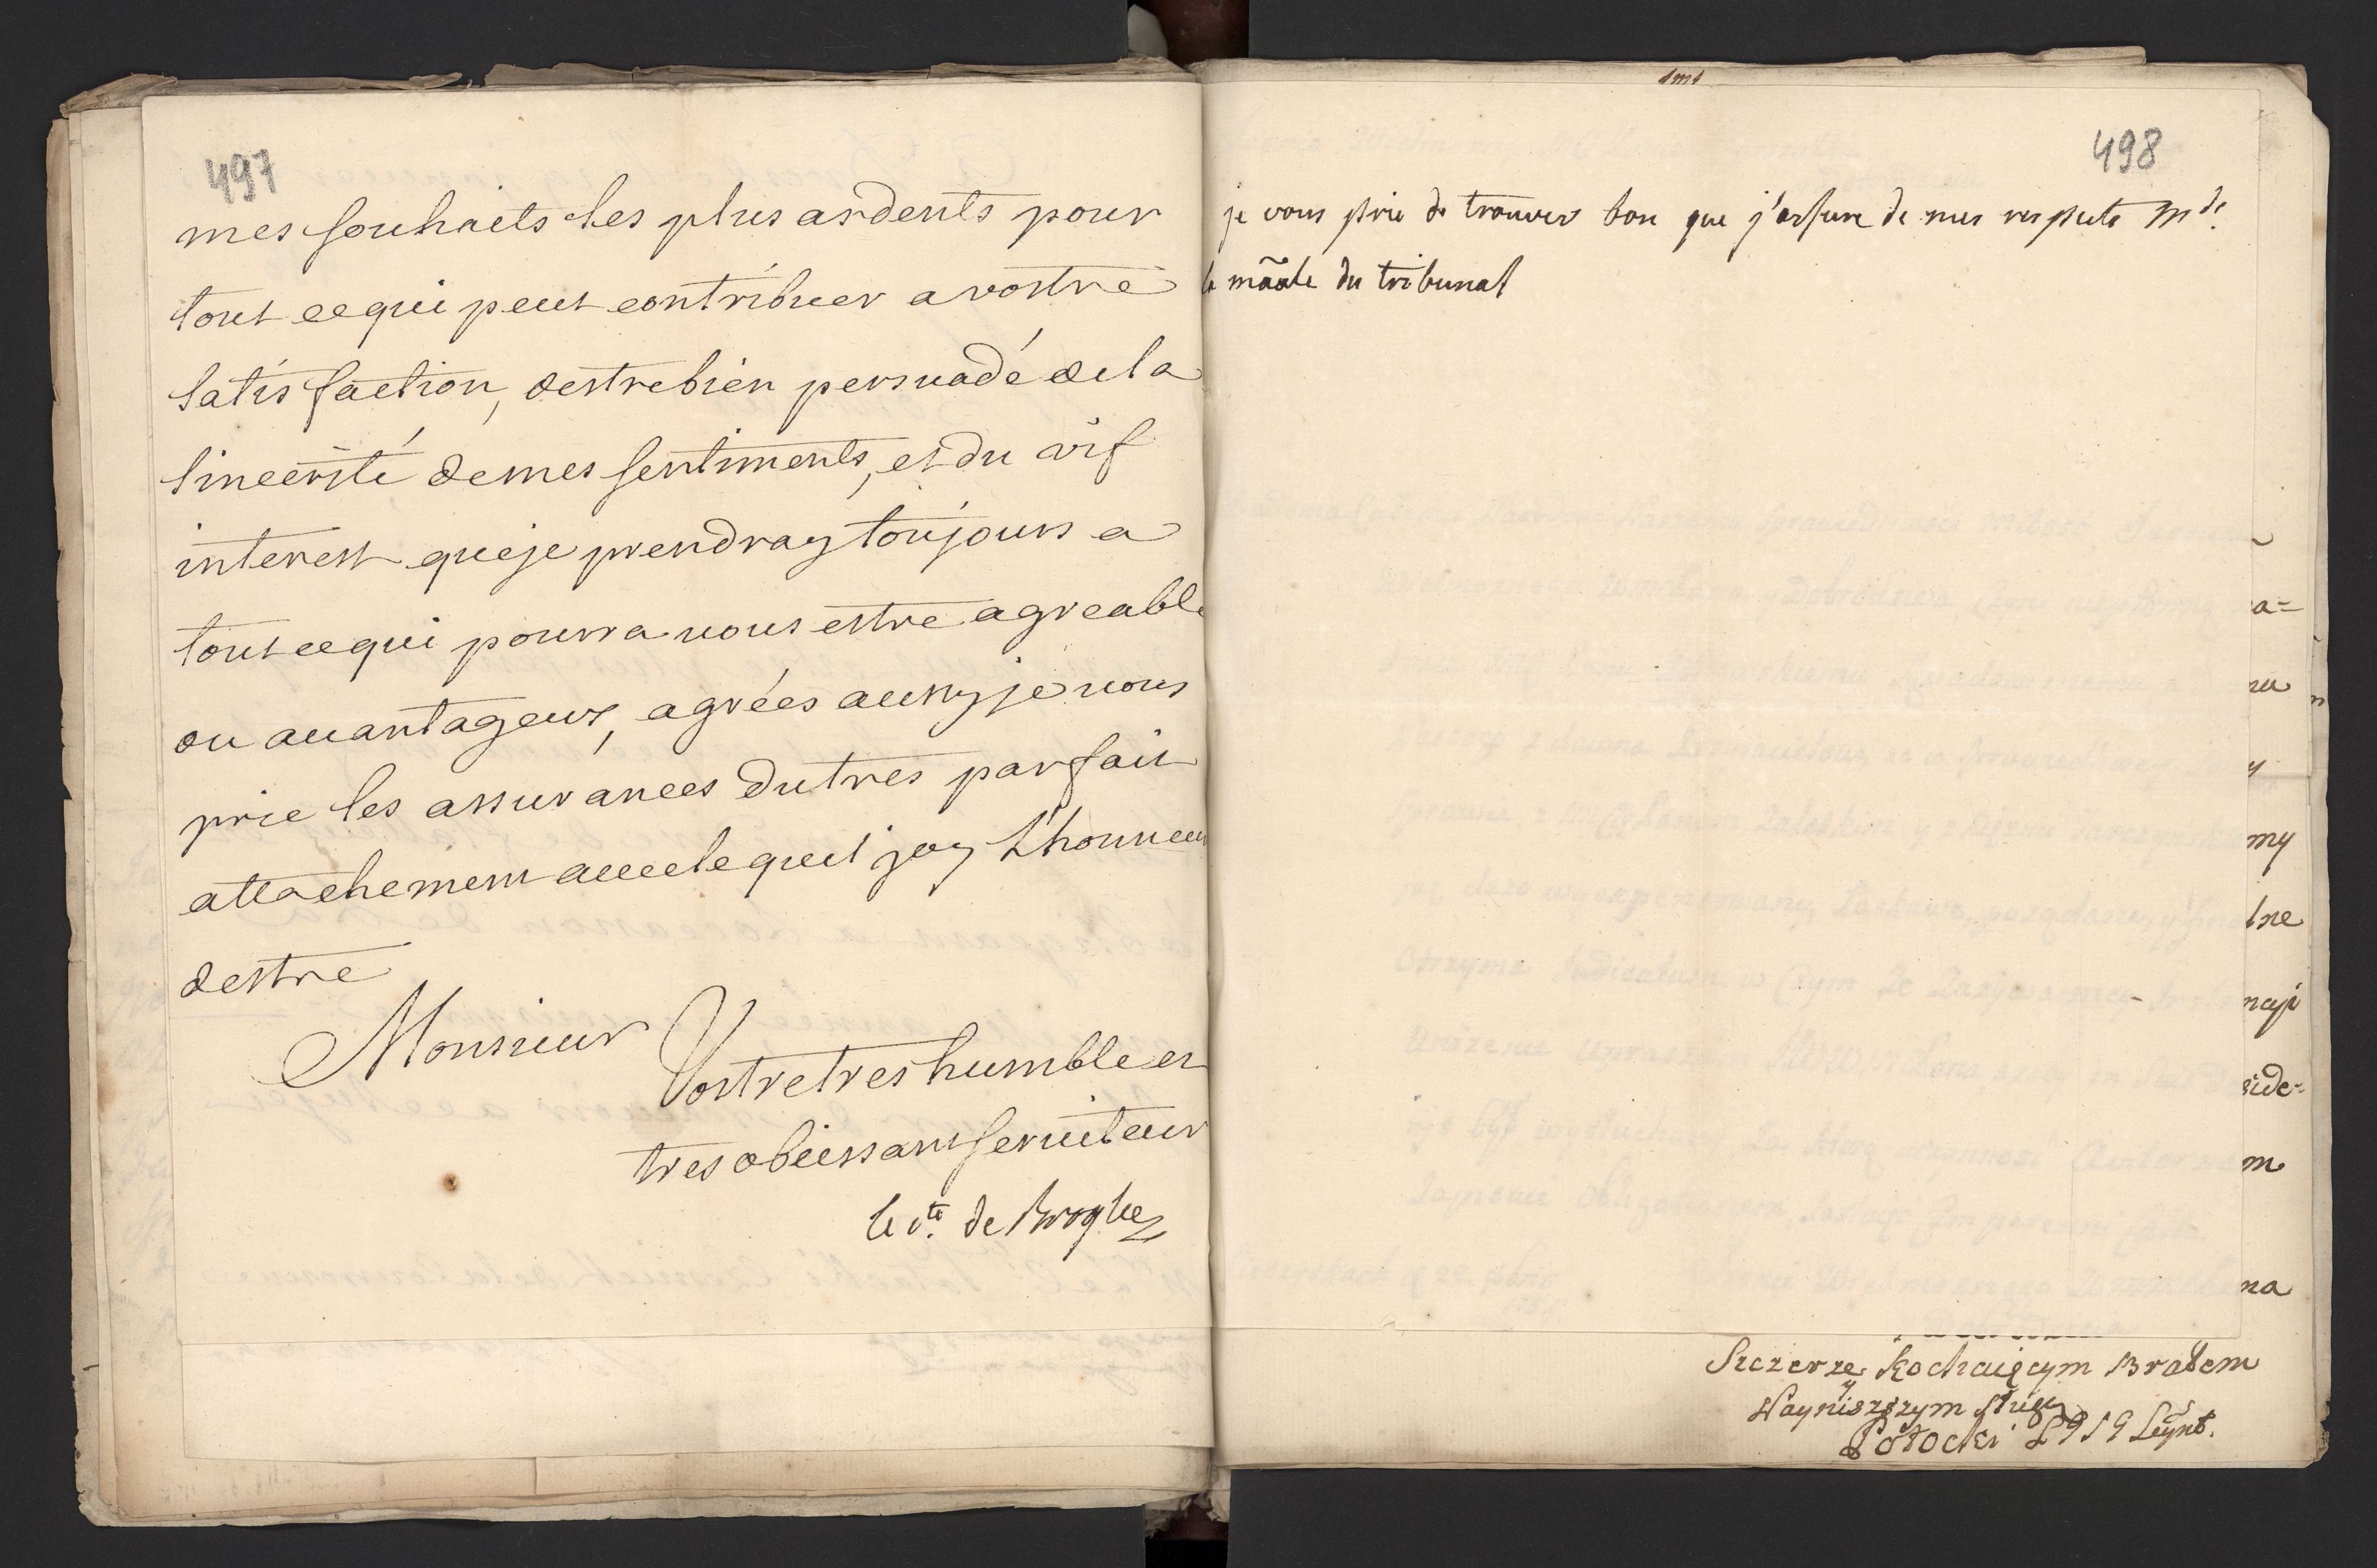 497
mes souhaits les plus ardents pour
tout ce qui peut contribuer a vostre
satisfaction, destre bien persuadé de la
sincerité de mes sentiments, et du vif
interest que je prendray toujours a
tout ce qui pourra uous estre agreable
ou auantageux, agrées aussy je uous
prie les assurances du tres parfait
attachement auec lequel jay L'honneur
destre
Monsieur
Vostre tres humble et
tres obeissant seruiteur
le cte. de Broglie
498
je vous prie de trouver bon que j'assure de mes respects Mde.
la mãale du tribunal
a=
my
lne
side=
m
na
Szczerze Kochaiącym Bratem
y
Nayniszszym sługą
Potocki